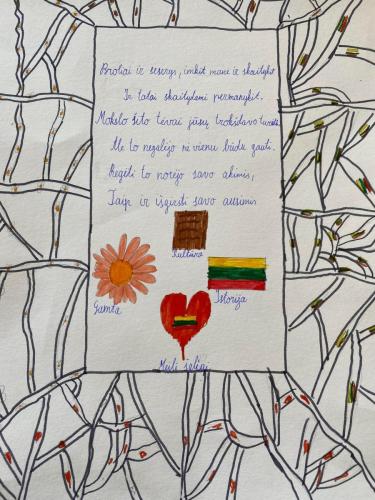 Broliai ir seserys, imkit mane ir skaitykit
Ir tatai skaitydami permanykit.
Mokslo šito tėvai jūsų trokšdavo turėti,
Ale to negalėjo nė vienu būdu gauti.
Regėti to norėjo savo akimis,
Taip ir išgirsti savo ausimis
Kultūra
Gamta
Istorija